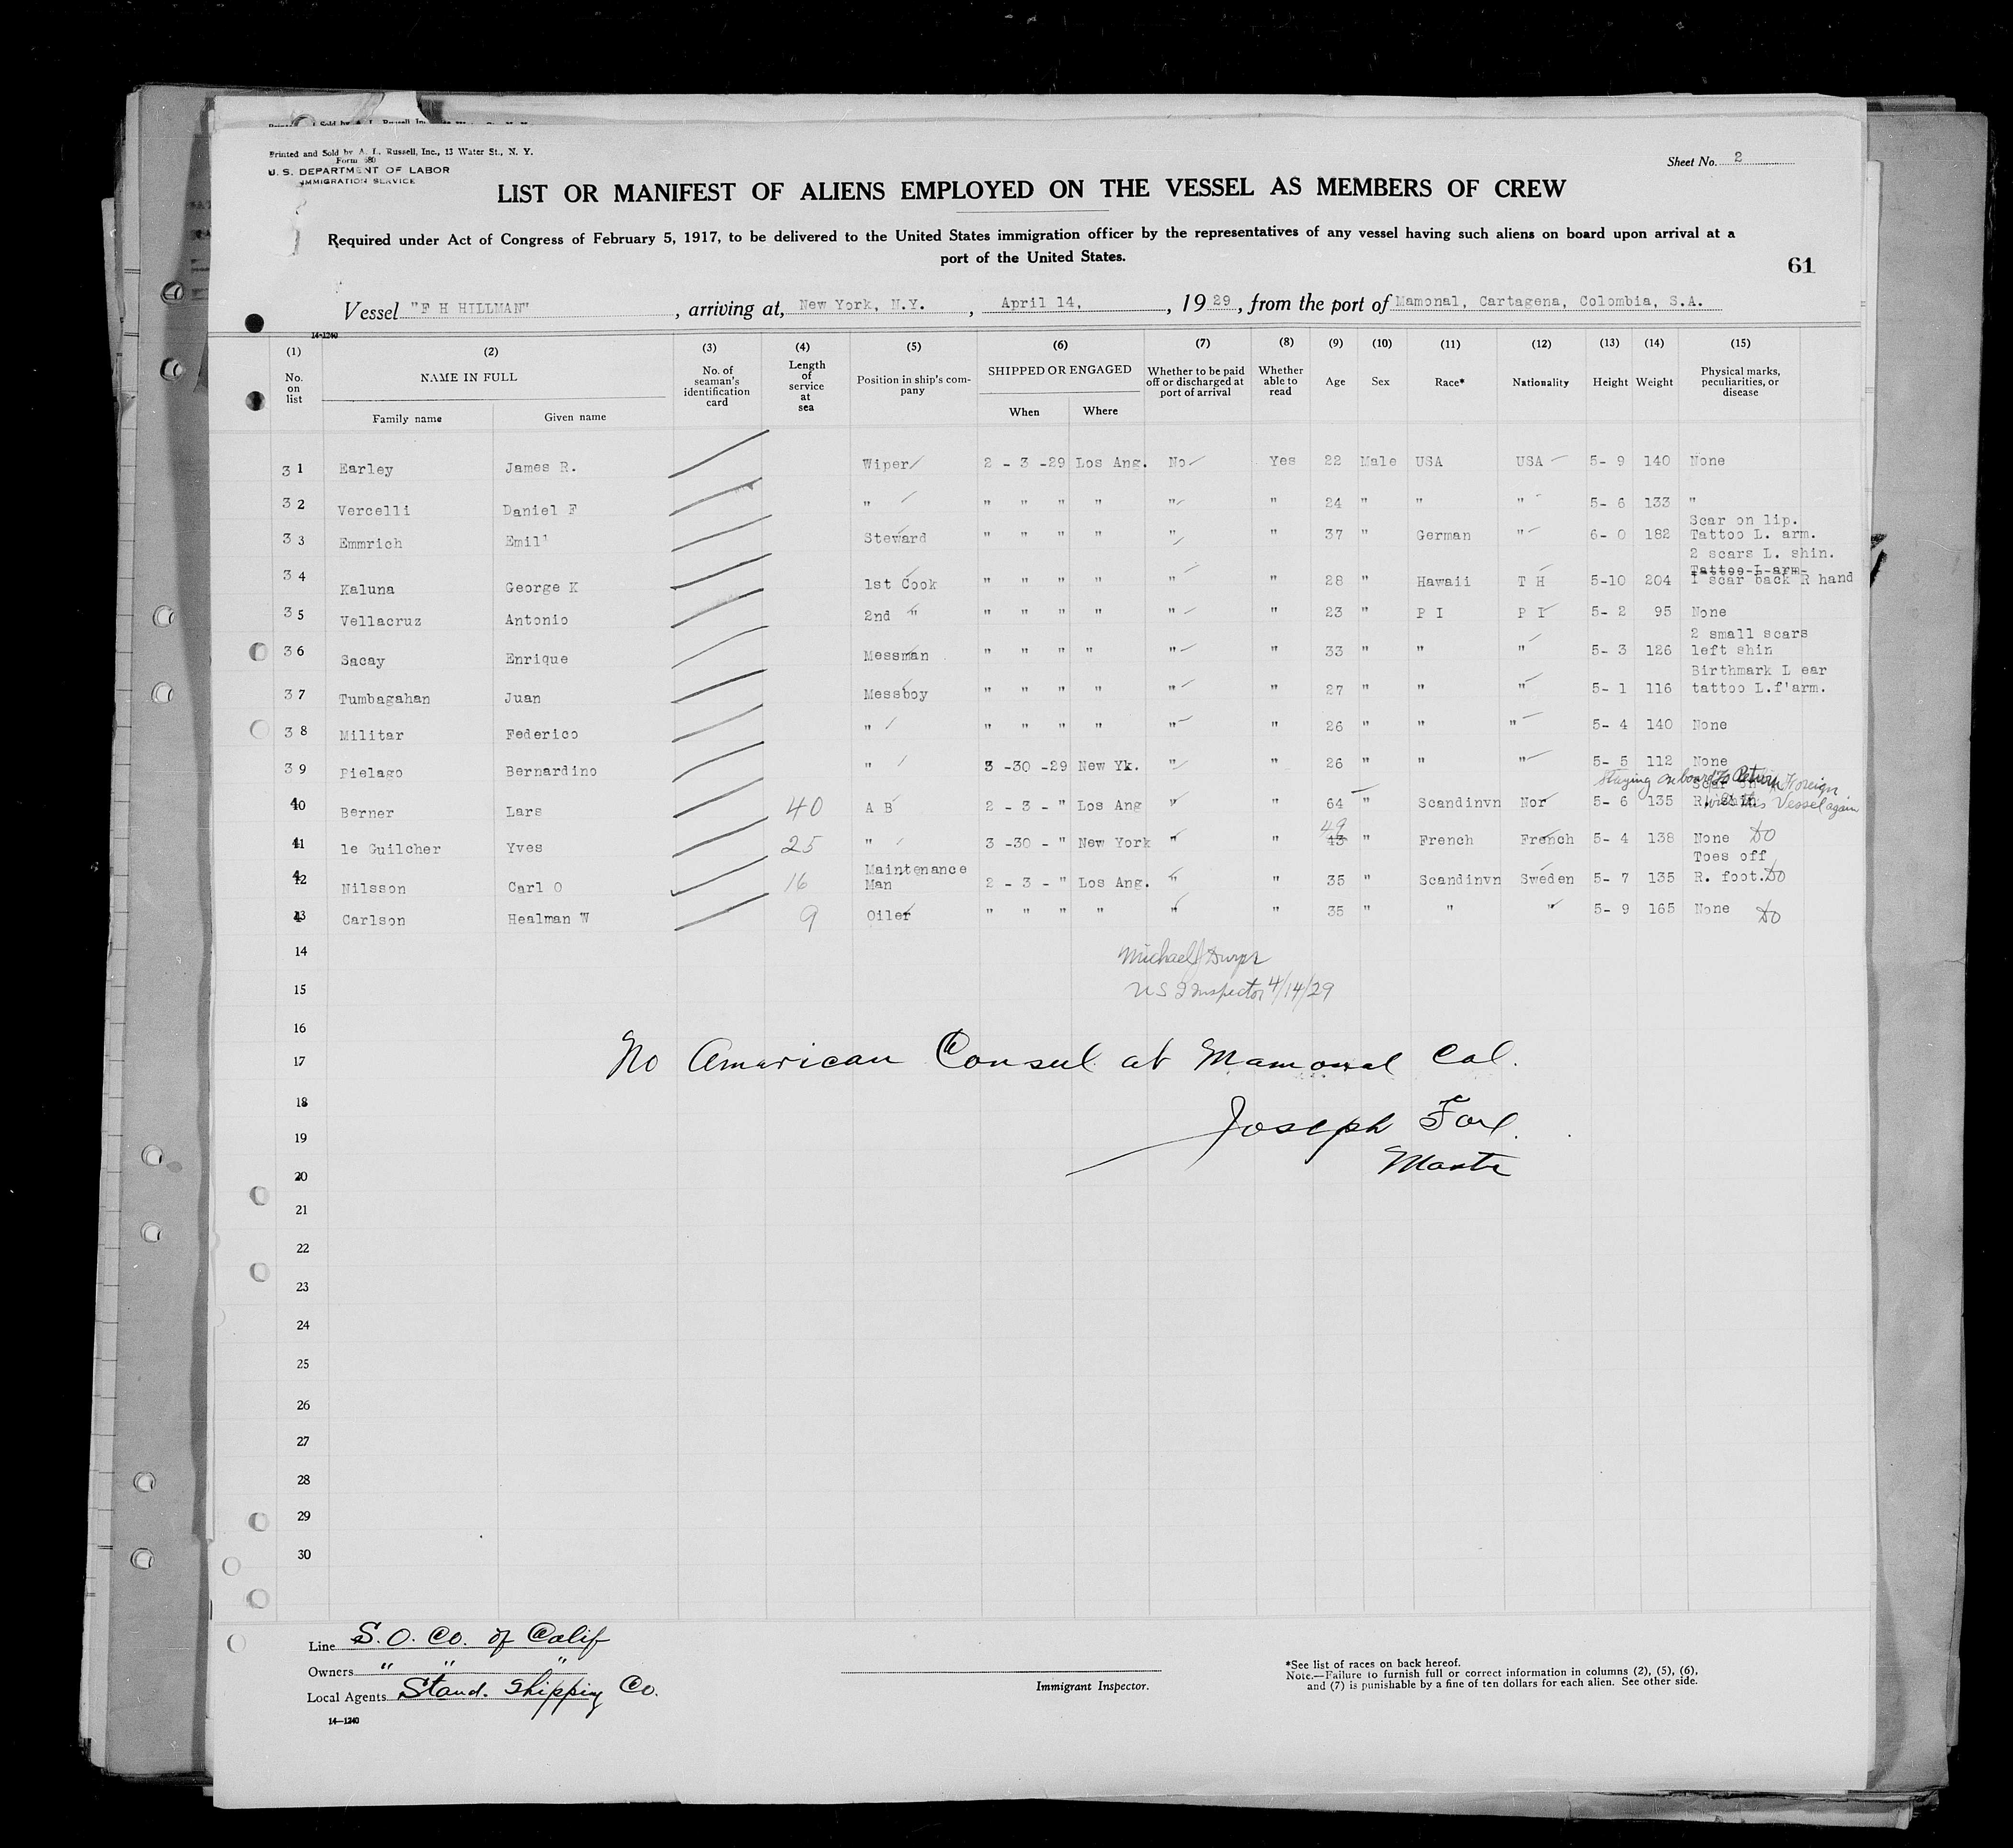 Printed and Sold by A. L. Russell, Inc., 13 Water St., N. Y.
Form 680
U. S. DEPARTMENT OF LABOR
IMMIGRATION SERVICE
Sheet No. 2
LIST OR MANIFEST OF ALIENS EMPLOYED ON THE VESSEL AS MEMBERS OF CREW
Required under Act of Congress of February 5, 1917, to be delivered to the United States immigration officer by the representatives of any vessel having such aliens on board upon arrival at a
port of the United States.
61
Vessel "F H HILLMAN", arriving at, New York, N.Y., April 14, 1929, from the port of Mamonal, Cartagena, Colombia, S.A.
14-1240
(1) (2) (3) (4) (5) (6) (7) (8) (9) (10) (11) (12) (13) (14) (15)
No. on list NAME IN FULL No. of seaman's identification card Length of service at sea Position in ship's company SHIPPED OR ENGAGED Whether to be paid off or discharged at port of arrival Whether able to read Age Sex Race* Nationality Height Weight Physical marks, peculiarities, or disease
Family name Given name When Where
31 Earley James R. Wiper 2 - 3 -29 Los Ang. No Yes 22 Male USA USA 5- 9 140 None
32 Vercelli Daniel F " " " " " " " 24 " " " 5- 6 133 "
33 Emmrich Emil' Steward " " " " " " 37 " German " 6- 0 182 Scar on lip. Tattoo L. arm.
34 Kaluna George K 1st Cook " " " " " " 28 " Hawaii T H 5-10 204 2 scars L. shin. Tattoo L arm- 1 scar back R hand
35 Vellacruz Antonio 2nd " " " " " " " 23 " P I P I 5- 2 95 None
36 Sacay Enrique Messman " " " " " " 33 " " " 5- 3 126 2 small scars left shin
37 Tumbagahan Juan Messboy " " " " " " 27 " " " 5- 1 116 Birthmark L ear tattoo L.f'arm.
38 Militar Federico " " " " " " " 26 " " " 5- 4 140 None
39 Pielago Bernardino " 3 -30 -29 New Yk. " " 26 " " " 5- 5 112 None
Staying on board to Return Foreign with this Vessel again
40 Berner Lars 40 A B 2 - 3 - " Los Ang " " 64 " Scandinvn Nor 5- 6 135 Scar on R.
41 le Guilcher Yves 25 " 3 -30 - " New York " " 43 49 " French French 5- 4 138 None Do
42 Nilsson Carl O 16 Maintenance Man 2 - 3 - " Los Ang. " " 35 " Scandinvn Sweden 5- 7 135 Toes off R. foot. Do
43 Carlson Healman W 9 Oiler " " " " " " 35 " " " 5- 9 165 None Do
14
Michael J
15
U S Inspector 4/14/29
16
17
No American Consul at Mamonal Col.
18
Joseph
19
Master
20
21
22
23
24
25
26
27
28
29
30
Line S. O. Co. of Calif
Owners " " "
Local Agents Stand. Shipping Co.
14-1240
Immigrant Inspector.
*See list of races on back hereof.
Note.—Failure to furnish full or correct information in columns (2), (5), (6),
and (7) is punishable by a fine of ten dollars for each alien. See other side.